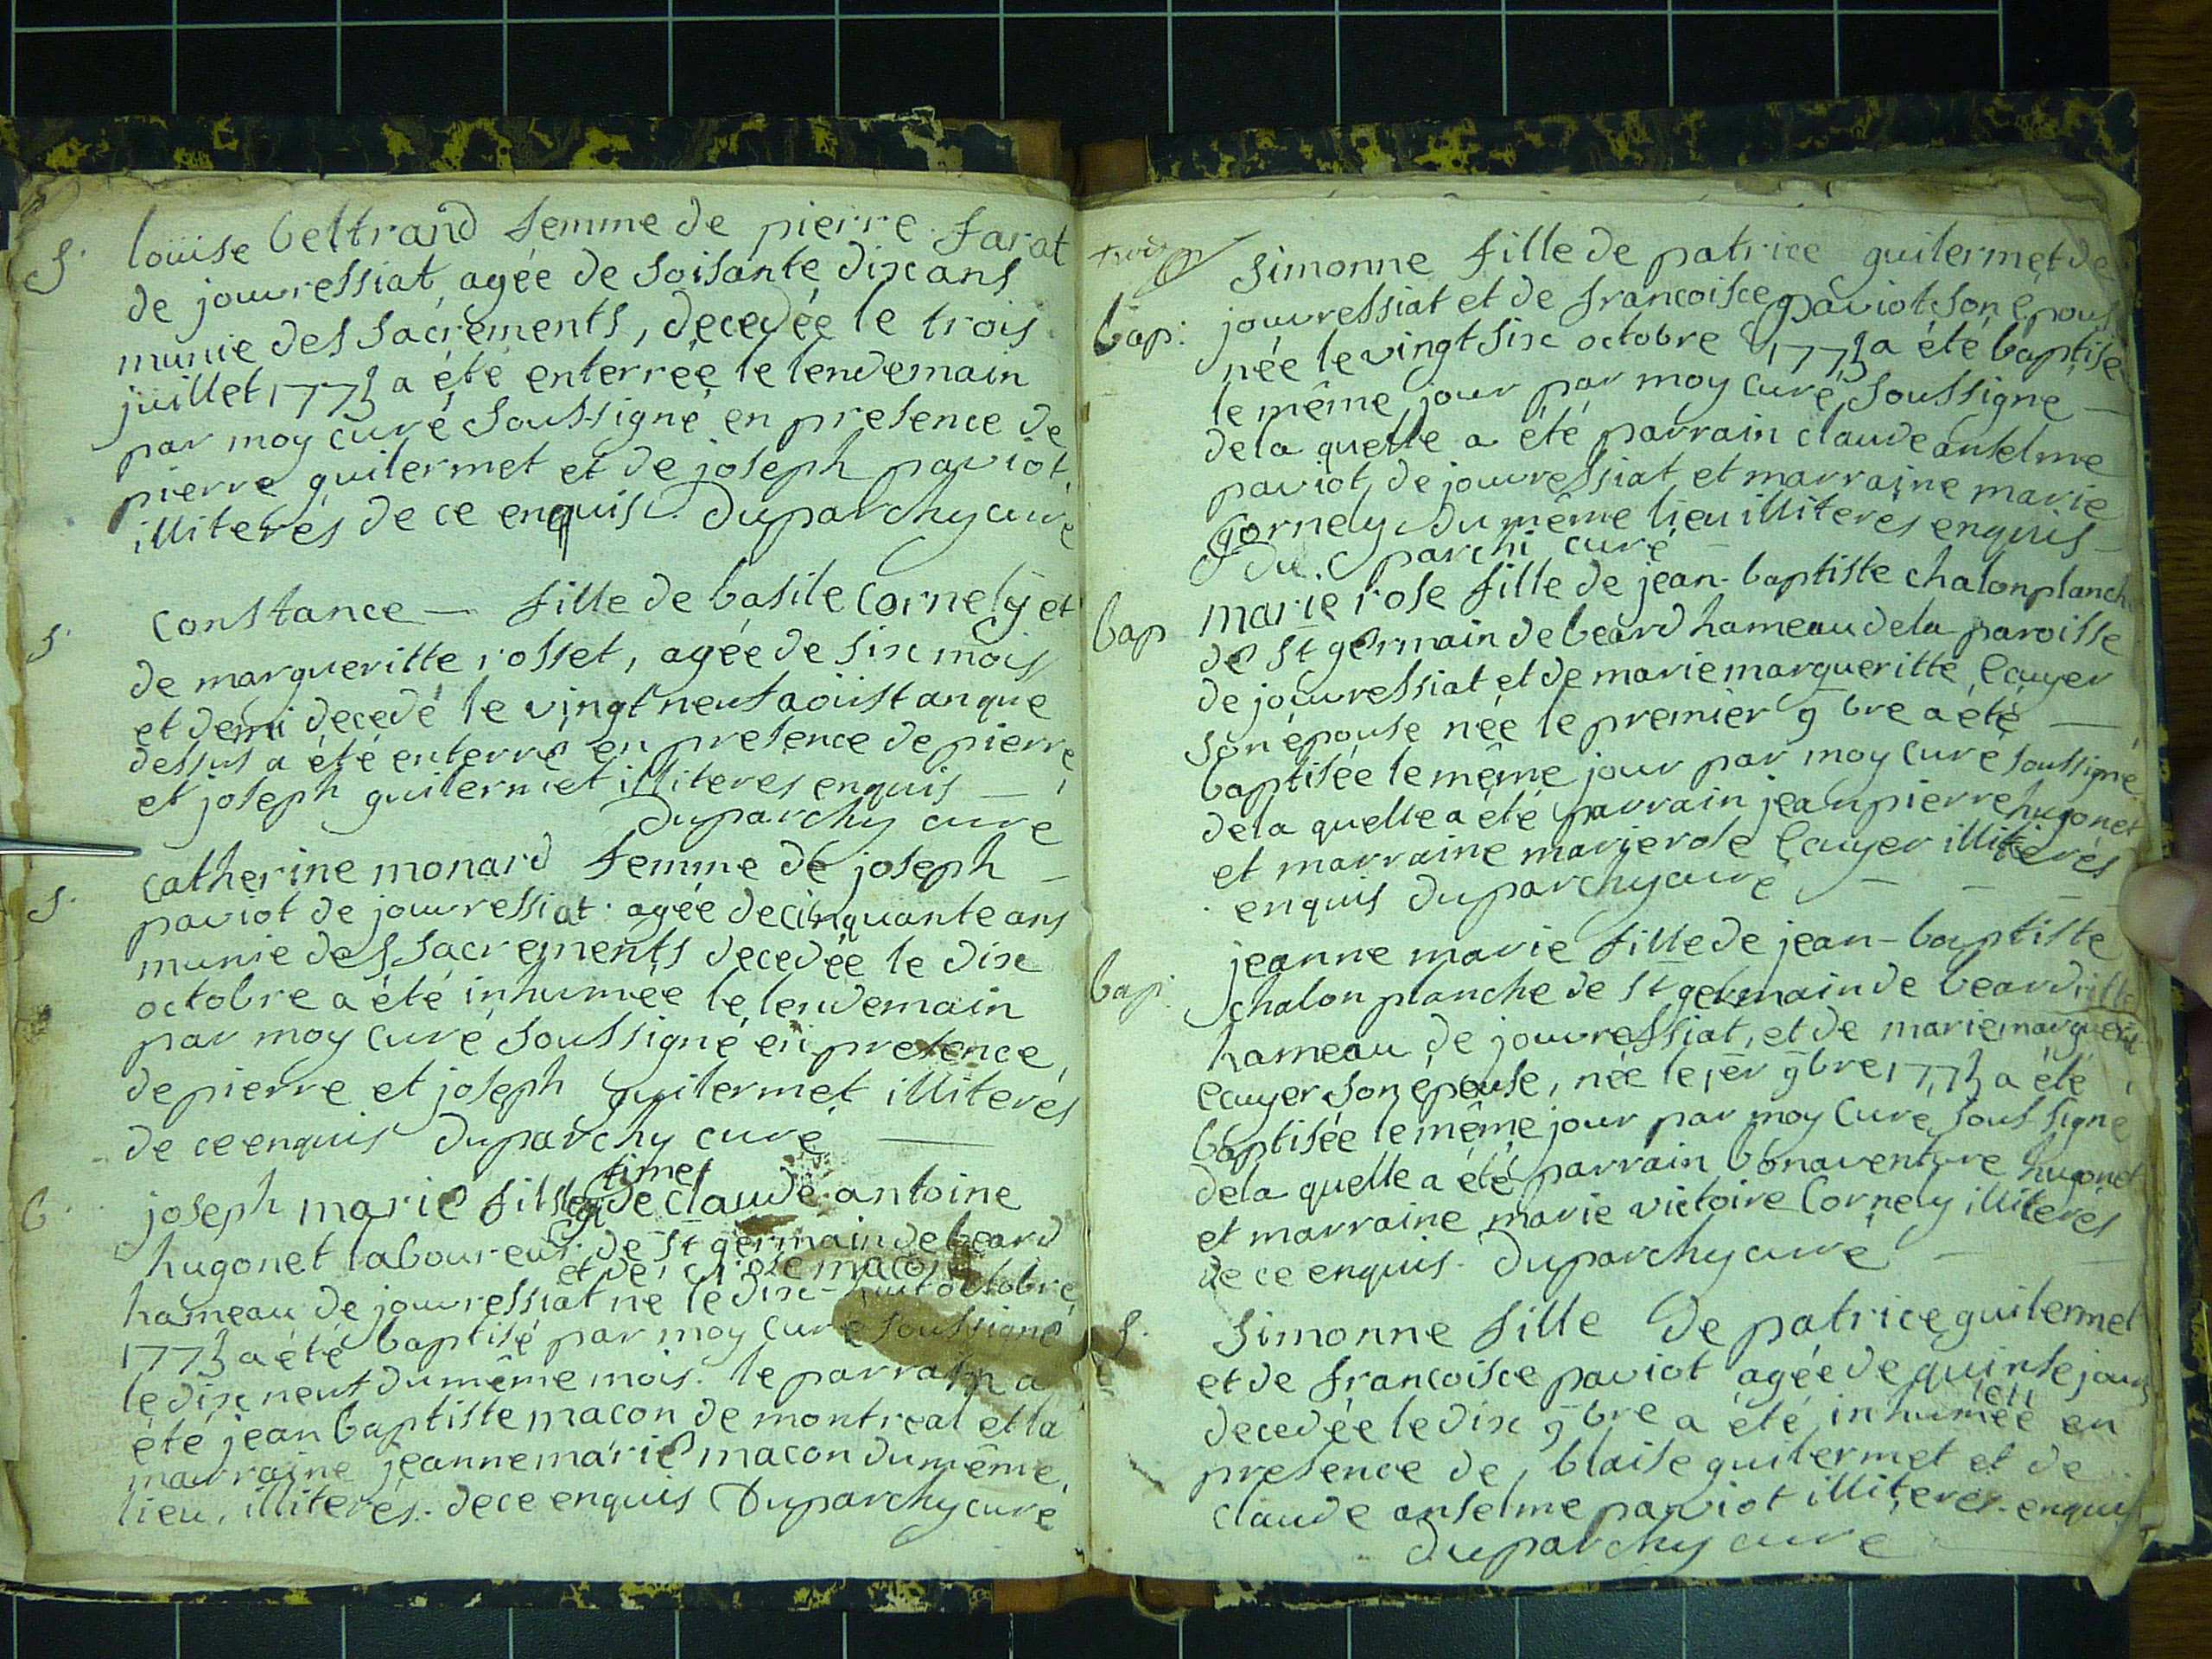 S. louise beltrand femme de pierre farat
de jouvressiat, agée de soisante dix ans
munie des sacrements, decedée le trois
juillet 1773 a été enterrée le lendemain
par moy curé soussigné en presence de
pierre guilermet et de joseph paviot
illiterés de ce enquis. Duparchy curé
S. Constance — fille de basile Cornely et
de margueritte rosset, agée de six mois
et demi decedé le vingt neuf aoüst an que
dessus a été enterré en presence de pierre
et joseph guilermet illiteres enquis —
Duparchy curé
S. catherine monard femme de joseph —
paviot de jouvressiat. agée de cinquante ans
munie des sacrements decedée le dix
octobre a été inhumée le lendemain
par moy curé soussigné en presence
de pierre et joseph guilermet illiterés
de ce enquis Duparchy curé —
B. joseph marie fils legitime de claude antoine
hugonet laboureur de St germain de beard
et de macon
hameau de jouvressiat né le dix-huit octobre
1773 a été baptisé par moy curé soussigné
le dix neuf du même mois. le parrain a
été jean baptiste macon de montreal et la
marraine jeanne marie macon du même
lieu, illiterés. de ce enquis Duparchy curé
Simonne fille de patrice guilermet de
bap: jouvressiat et de francoisce paviot son épous
née le vingt six octobre 1773 a été baptisé
le même jour par moy curé soussigne —
de la quelle a été parrain claude anselme
paviot de jouvressiat, et marraine marie
Cornely du même lieu illiteres enquis —
du parchi curé
bap marie rose fille de jean-baptiste chalonplanche
de St germain de beard hameau de la paroisse
de jouvressiat et de marie margueritte Ecuyer
son épouse née le premier 9bre a été —
baptisée le même jour par moy curé soussigné
de la quelle a été parrain jean pierre hugonet
et marraine marie rose Ecuyer illiterés
enquis Duparchy curé — — —
bap: jeanne marie fille de jean-baptiste
chalon planche de St germain de beard
hameau de jouvressiat, et de marie marguerit
ecuyer son épouse, née le 1er 9bre 1773 a été
baptisée le même jour par moy Curé soussigné
de la quelle a été parrain bonaventure hugonet
et marraine marie victoire Cornely illiterés
de ce enquis. Duparchy curé —
S. Simonne fille de patrice guilermet
et de francoisce paviot agée de quinse jours
decedée le dix 9bre a été inhumée en
presence de blaise guilermet et de
claude anselme paviot illiterés enquis
Duparchy curé